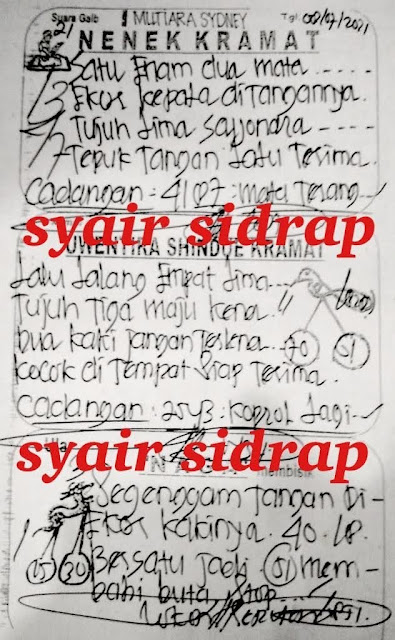 Suara Gaib MUTIARA SYDNEY Tgl: 08/07/2021
NENEK KRAMAT
Satu Enam dua mata .....
Ekor kepala ditangannya.
Tujuh Lima Sayjondra ----
Tepuk Tangan Satu Terima.
Cadangan: 4107: Mata Terang
syair sidrap
UWENTIRA SHINDUE KRAMAT
Lalu Lalang Empat Lima
Tujuh Tiga maju kena "
Dua kaki jangan Terlena 70 51
Cocok di Tempat Siap Terima.
Cadangan: 2543: Koprol Lagi
syair sidrap
membisik
Segenggam Tangan Di-
Ekor kakinya. 40.18.
15 30 Bersatu jadi 51 mem-
babi buta stop